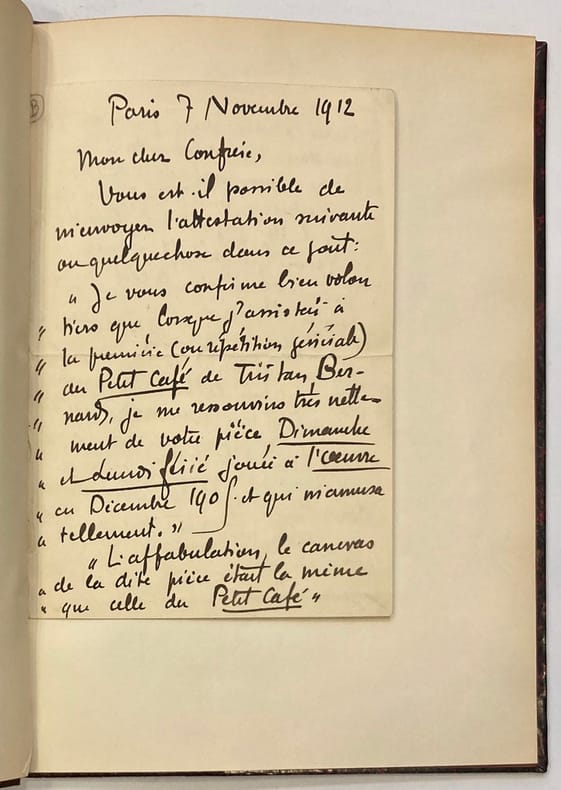 B
Paris 7 Novembre 1912
Mon cher Confrère,
Vous est-il possible de
m'envoyer l'attestation suivante
ou quelquechose dans ce gout :
" Je vous confirme bien volon
" tiers que lorsque j'assistai à
" la première (ou répétition générale)
" du Petit Café de Tristan Ber-
" nard, je me ressouvins très nette-
" ment de votre pièce, Dimanche
" et Lundi férié jouée à l'œuvre
" en Décembre 190 et qui m'amusa
" tellement. "
" L'affabulation, le canevas
" de la dite pièce était la même
" que celle du Petit Café "